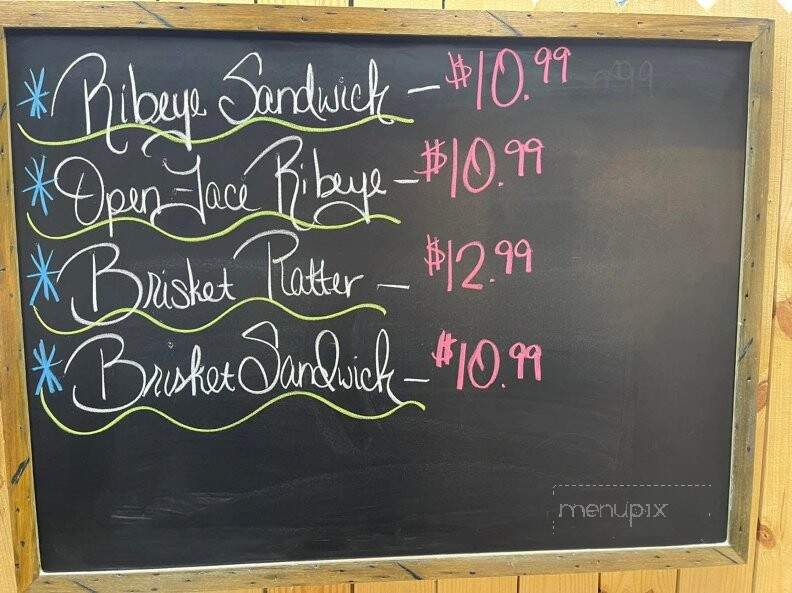 * Ribeye Sandwich - $10.99
* Open-Face Ribeye - $10.99
* Brisket Platter - $12.99
* Brisket Sandwich - $10.99
menupix